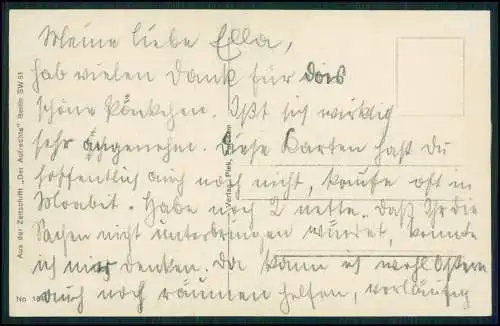 Meine liebe Ella,
hab vielen Dank für das
schöne Päckchen. Ißt sich wirklich
sehr angenehm. Diese Karten hast Du
hoffentlich auch noch nicht, kaufe oft in
Moabit. Habe noch 2 nette. Daß Ihr die
Sachen nicht unterbringen würdet, konnte
ich mir denken. Da kann ich wohl Ostern
auch noch räumen helfen, vorläufig
Aus der Zeitschrift „Der Aufrechte“ Berlin SW 61
No
Verlag